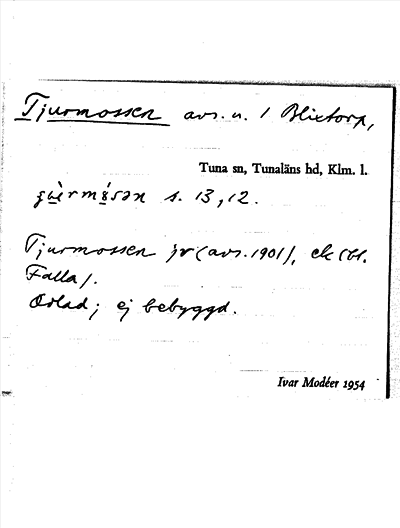 Tjurmossen avs. u. / Blixtorp,
Tuna sn, Tunaläns hd, Klm. l.
s. 13, 12.
Tjurmossen jr (avs. 1901), ek (bl.
Falla).
Odlad; ej bebyggd.
Ivar Modéer 1954